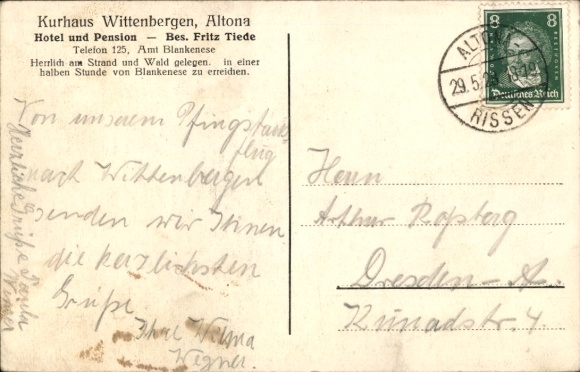 Kurhaus Wittenbergen, Altona
Hotel und Pension — Bes. Fritz Tiede
Telefon 125, Amt Blankenese
Herrlich am Strand und Wald gelegen. in einer
halben Stunde von Blankenese zu erreichen.
Von unserem Pfingstaus
flug
nach Wittenbergen
senden wir Ihnen
die herzlichsten
Grüße
Ihre Wilma
Wegner.
Herzliche Grüße
Wegner
8 8
Deutsches Reich
ALTONA
29.5.2
RISSEN
Herrn
Arthur Roßberg
Dresden-A.
Kunadstr. 4.